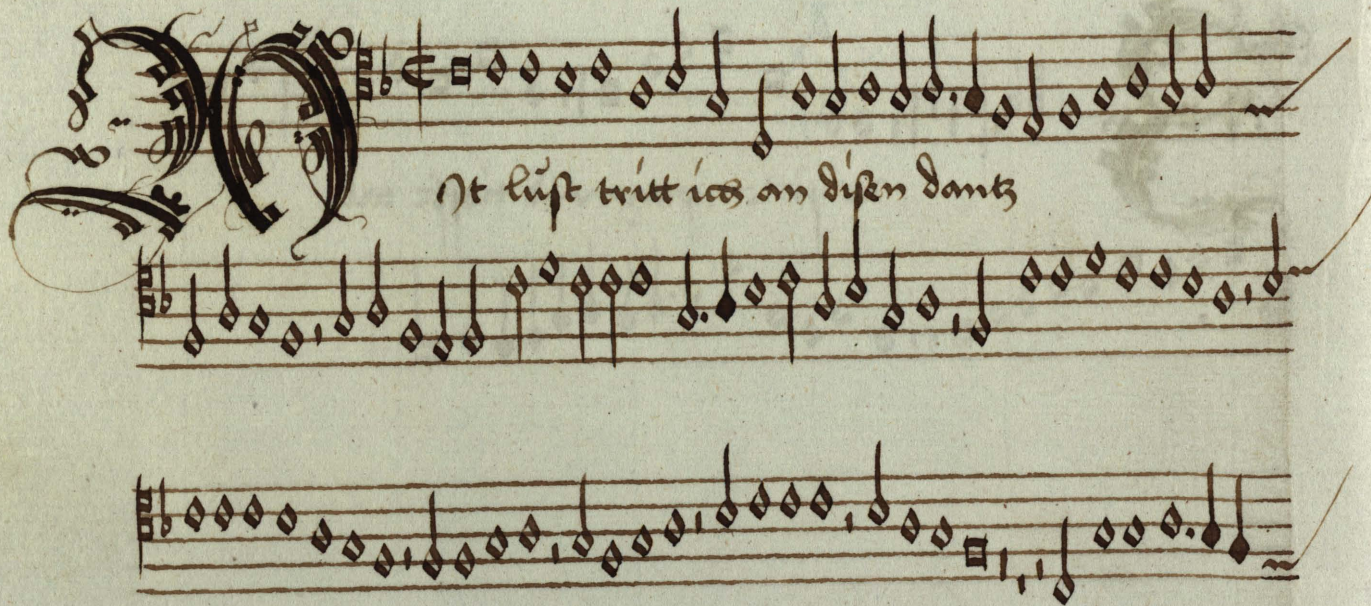 Mit lust tritt ich an disen dantz